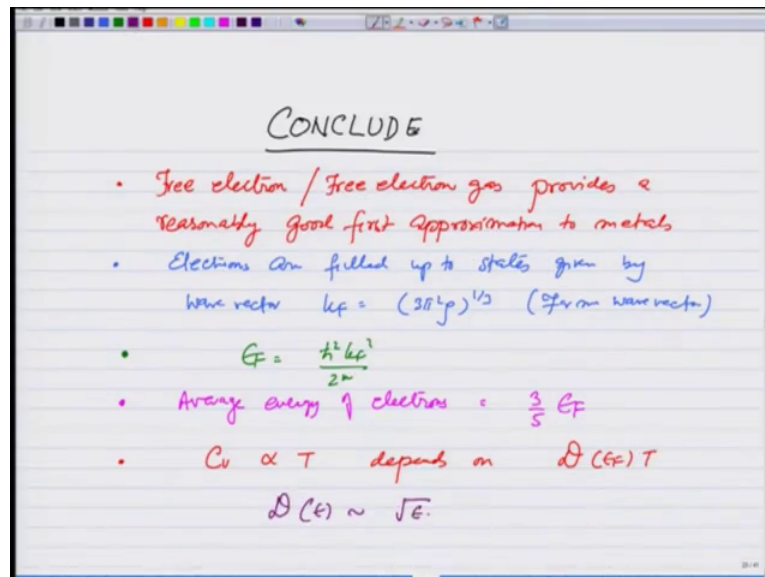 CONCLUDE
• Free electron / Free electron gas provides a
reasonably good first approximation to metals
• Electrons are filled up to states given by
wave vector kF = (3π²ρ)^1/3 (Fermi wavevector)
• EF = ħ²kF²/2m
• Average energy of electrons = 3/5 EF
• Cv ∝ T depends on D(EF)T
D(E) ~ √E.